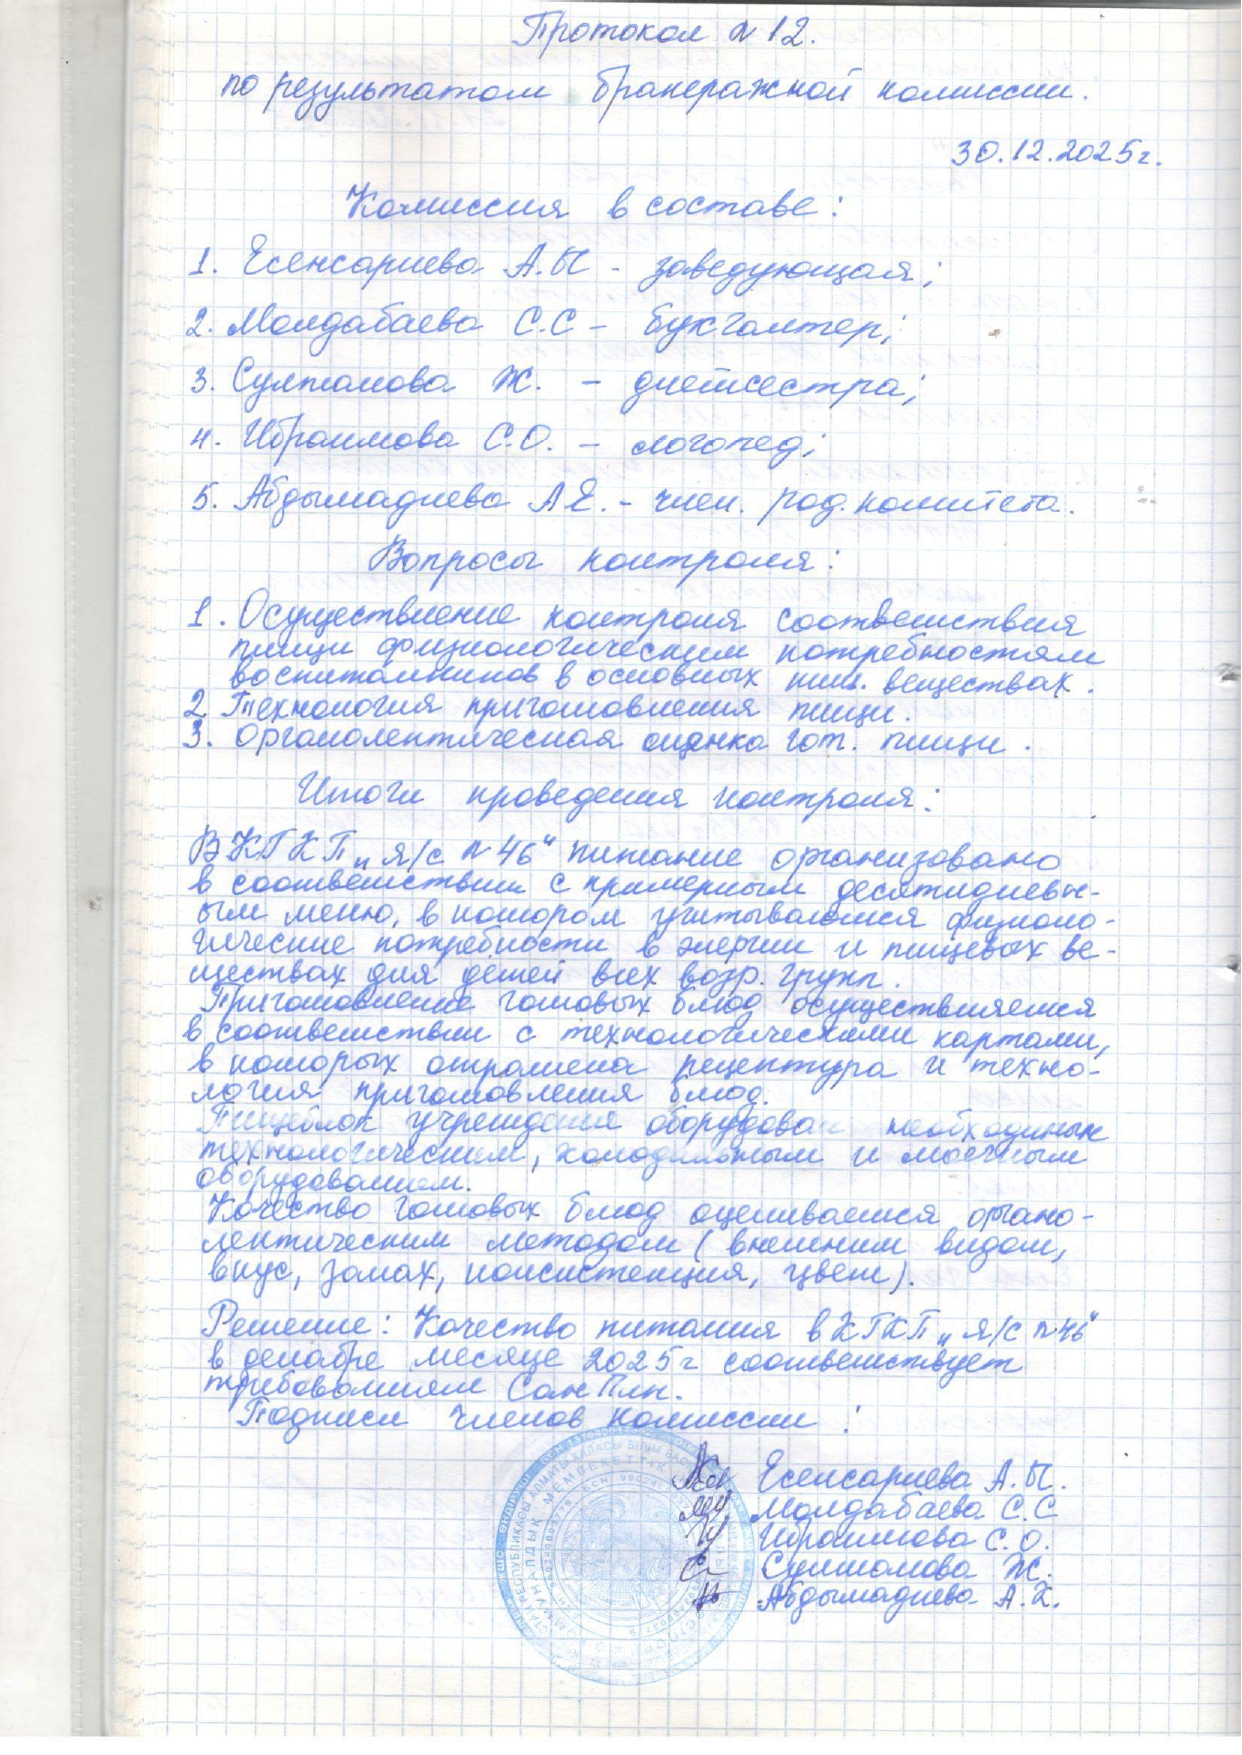 Протокол № 12.
по результатам бракеражной комиссии.
30.12.2025г.
Комиссия в составе:
1. Есенсариева А.Ы - заведующая;
2. Молдабаева С.С - бухгалтер;
3. Султанова Ж. - диетсестра;
4. Ибраимова С.О. - логопед;
5. Абдымадиева А.Е. - член. род. комитета.
Вопросы контроля:
1. Осуществление контроля соответствия
пищи физиологическим потребностям
воспитанников в основных пищ. веществах.
2. Технология приготовления пищи.
3. Органолептическая оценка гот. пищи.
Итоги проведения контроля:
В КГКП „Я/с №46“ питание организовано
в соответствии с примерным десятидневн-
ым меню, в котором учитываются физиоло-
гические потребности в энергии и пищевых ве-
ществах для детей всех возр. групп.
Приготовление готовых блюд осуществляется
в соответствии с технологическими картами,
в которых отражена рецептура и техно-
логия приготовления блюд.
Пищеблок учреждения оборудован необходимым
технологическим, холодильным и моечным
оборудованием.
Качество готовых блюд оценивается органо-
лептическим методом (внешним видом,
вкус, запах, консистенция, цвет).
Решение: Качество питания в КГКП „Я/с №46“
в декабре месяце 2025г соответствует
требованиям СанПин.
Подписи членов комиссии:
Есенсариева А.Ы.
Молдабаева С.С
Ибраимова С.О.
Султанова Ж.
Абдымадиева А.